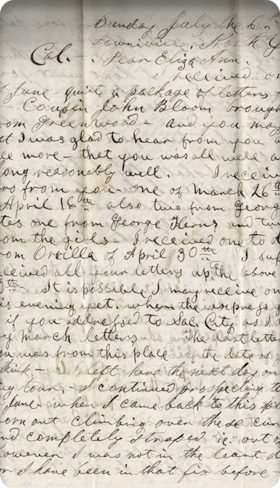 Sunday July the 6.
Cal. - Dear Eliza Ann.
received
of June quite a package of letters
Cousin John Bloom broug
om Greenwood - and you may
t I was glad to hear from you
e more - that you was all well
ong reasonably well. I receiv
rs from you - one of March 26
April 16th also two from Georg
tes one from George Kerns and tw
om the girls - I received one to
om Orvilla of April 30th I su
ceived all your letters up the above
th - It is possible I may receive on
is evening yet - when the express
if you addressed to Sac. City as
y March letters The last letter
ou was from this place the date
think - I left here the next day on
ng tour. - I continued prospecting
June - when I came back to this
orn out climbing over the
nd completely strapped i.e. out of
owever I was not in the least
or I have been in that fix before